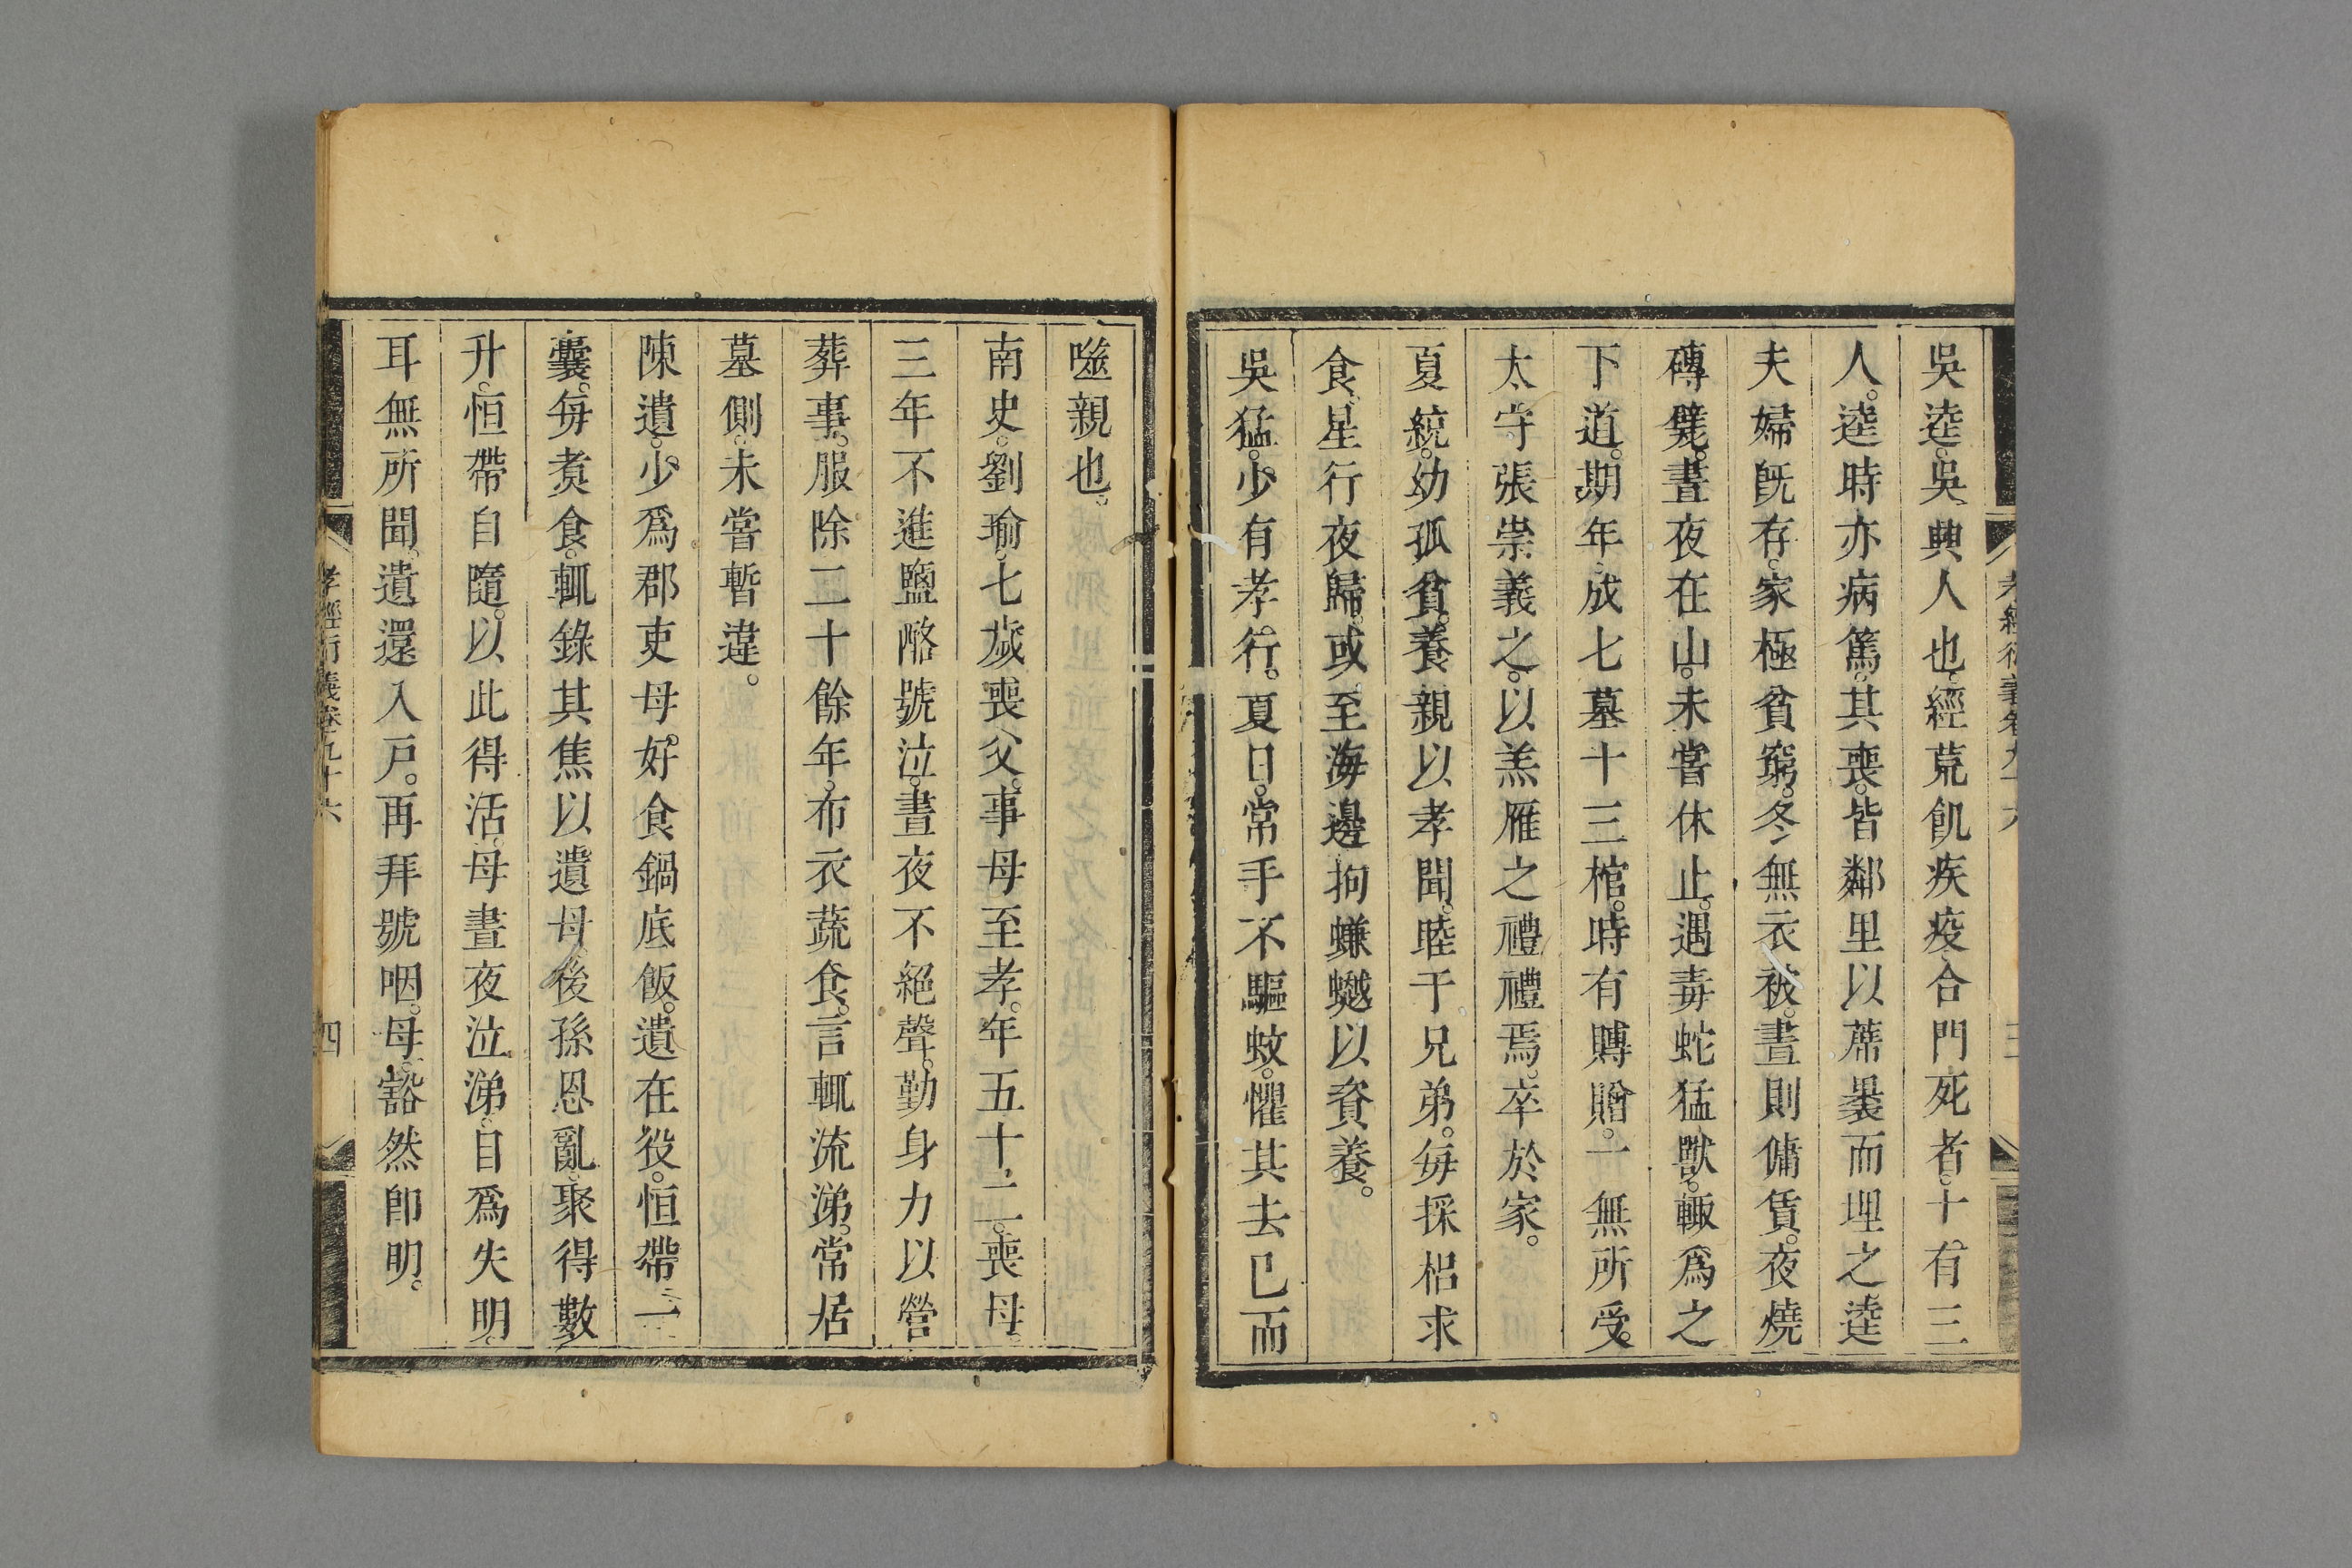 孝經衍義卷九十六
三
吳逵。吳興人也。經荒飢疾疫。合門死者。十有三
人。逵時亦病篤。其喪。皆鄰里以蓆裹而埋之。逵
夫婦旣存。家極貧窮。冬無衣被。晝則傭賃。夜燒
磚甓。晝夜在山。未嘗休止。遇毒蛇猛獸。輒爲之
下道。期年。成七墓十三棺。時有賻贈。一無所受。
太守張崇義之。以羔雁之禮禮焉。卒於家。
夏統。幼孤貧。養親以孝聞。睦于兄弟。每採梠求
食。星行夜歸。或至海邊拘蠊𧑅以資養。
吳猛。少有孝行。夏日。常手不驅蚊。懼其去已而
噬親也。
南史。劉瑜。七歲喪父。事母至孝。年五十二。喪母。
三年不進鹽酪。號泣。晝夜不絕聲。勤身力以營
葬事。服除二十餘年。布衣蔬食。言輒流涕。常居
墓側。未嘗暫違。
陳遺。少爲郡吏。母。好食鍋底飯。遺在役。恒帶一
囊。每煑食。輒錄其焦以遺母。後孫恩亂。聚得數
升。恒帶自隨。以此得活。母晝夜泣涕。目爲失明。
耳無所聞。遺還入戸。再拜號咽。母。豁然卽明。
孝經衍義卷九十六
四